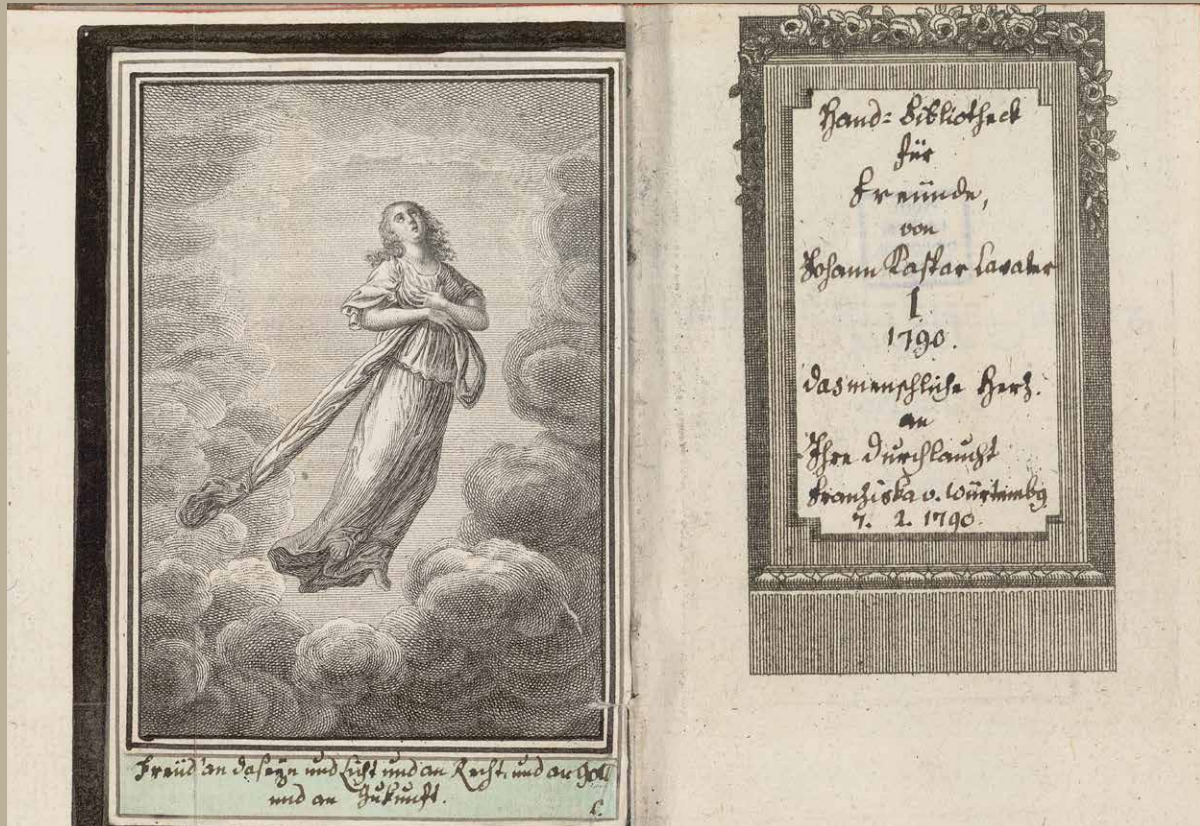 Freüd' an daseyn und Licht und an Recht, und an Gott
und an Zukunft.
L.
Hand-Bibliotheck
für
Freünde,
von
Johann Kaspar Lavater
I
1790.
das menschliche Herz.
an
Ihre Durchlaucht
Franziska v. Würtembg
7. 2. 1790.